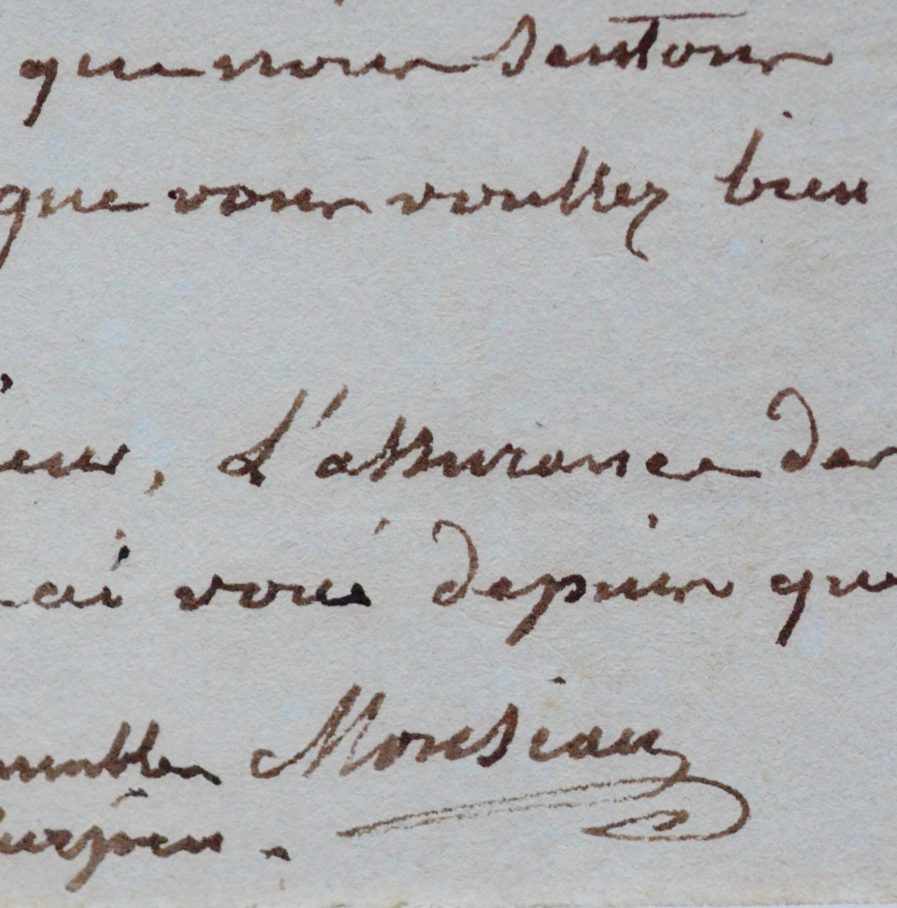 que nous sentons
que vous voullez bien
ieur, L'assurance des
ai voué depuis que
umble Monsiau